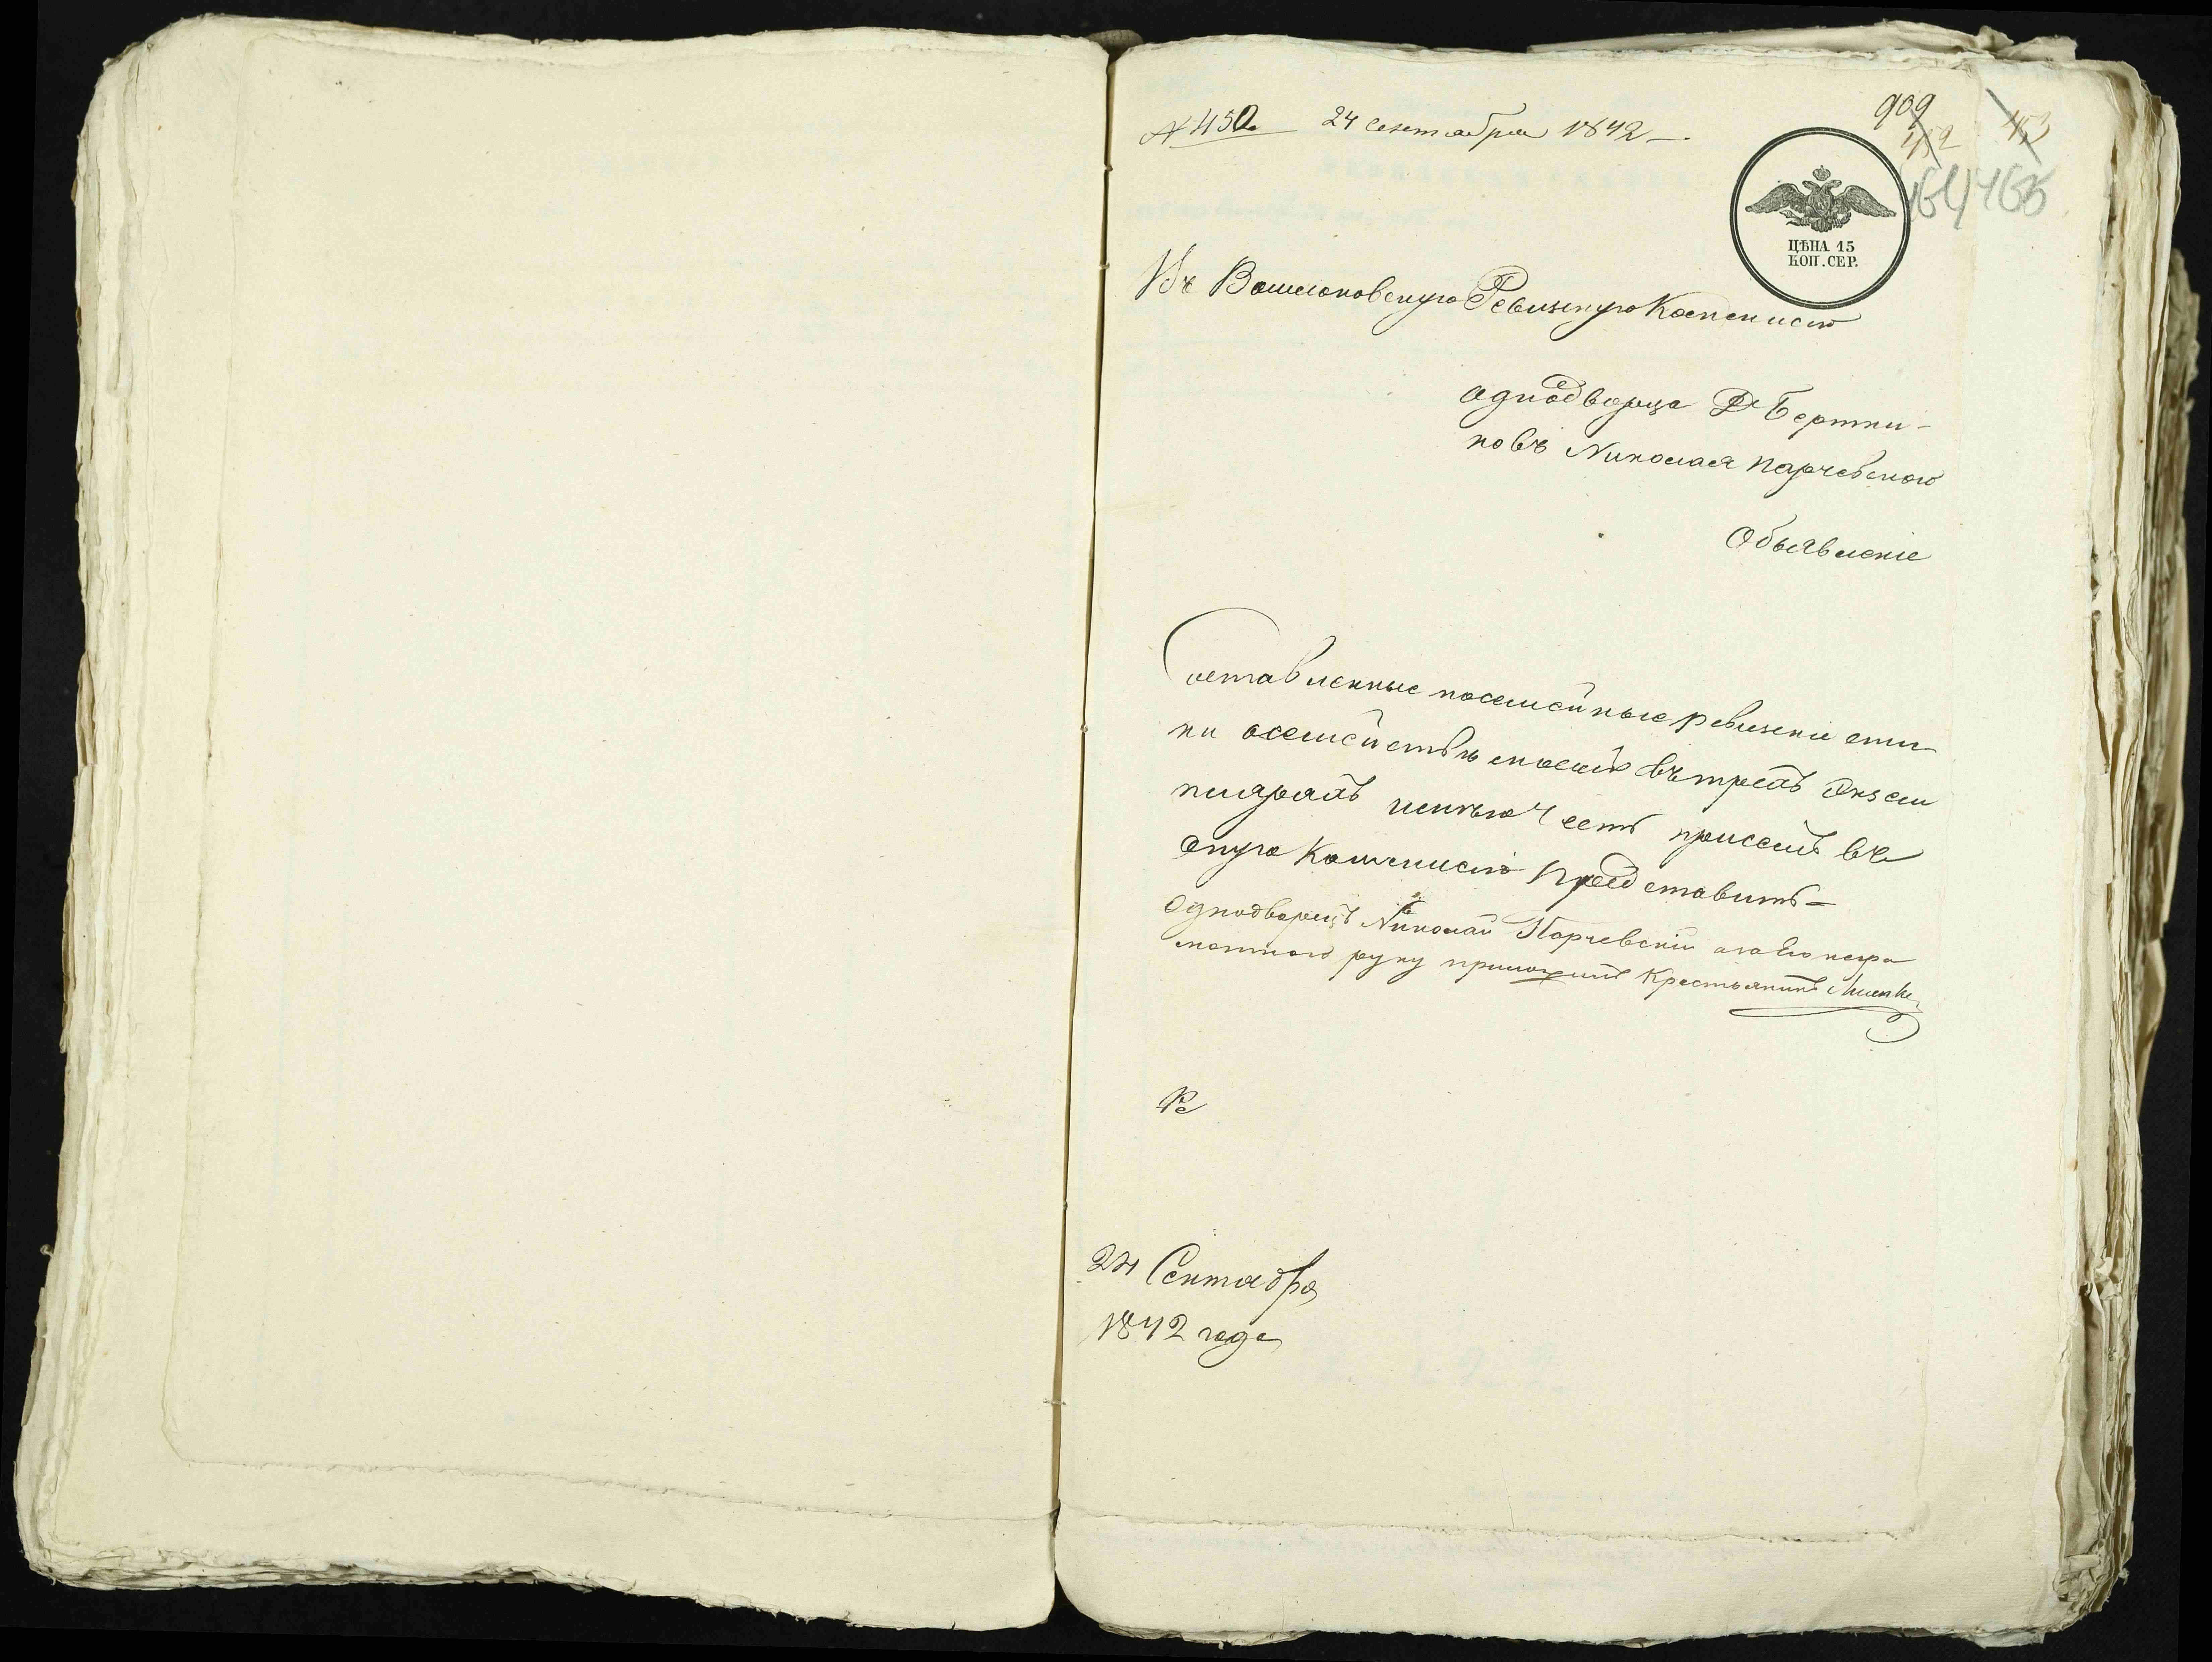 № 450. 24 сентября 1842 —.
909
452
453
464
465
ЦѢНА 15
КОП. СЕР.
Въ Ревизкую Коммисію
однодворца Бертни-
ковъ Николая Парчевского
Обьявленіе
Составленные посемейные ревизкіе
ни осемействѣ моемъ въ трехъ Экзем
плярахъ честь присемъ въ
оную Коммисію представить —
Однодворецъ Николай Парчевскій а за Его негра
мотного руку приложилъ Крестьянинъ
Ре
24 Сентября
1842 года